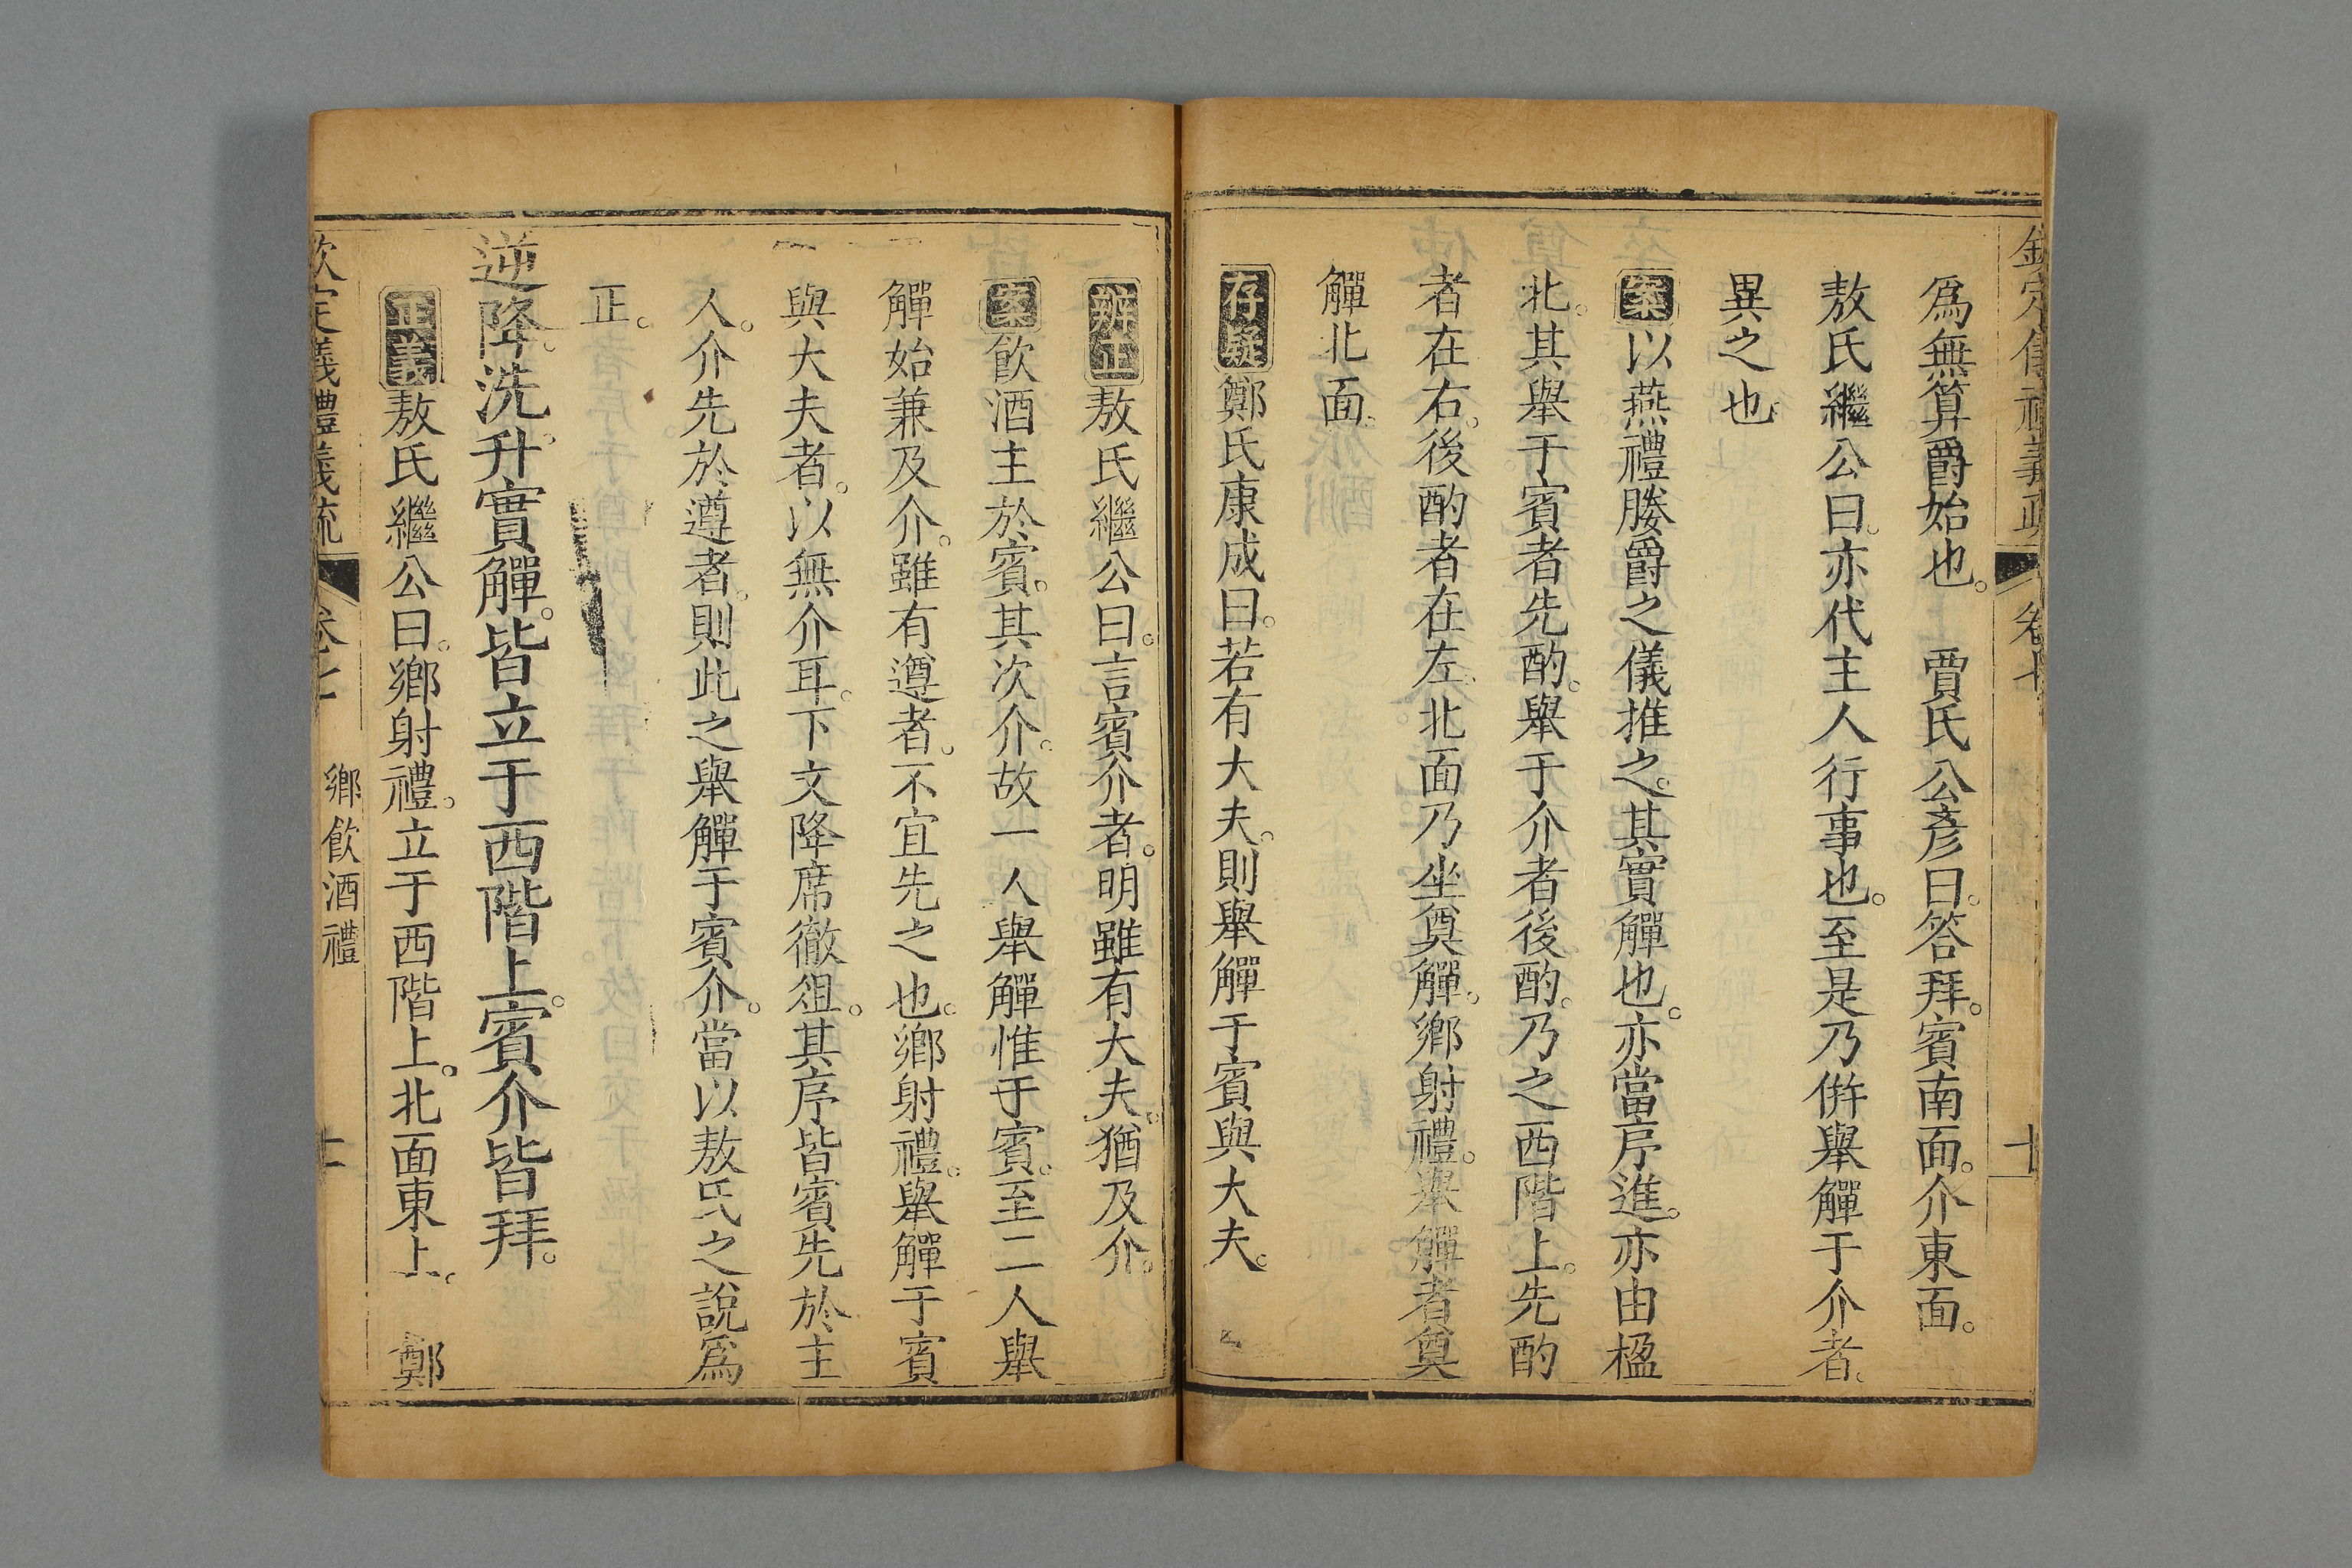 爲無算爵始也。　賈氏公彥曰。答拜。賓南面。介東面。
敖氏繼公曰。亦代主人行事也。至是乃倂舉觶于介者。
異之也。
案以燕禮媵爵之儀推之。其實觶也。亦當序進。亦由楹
北。其舉于賓者先酌。舉于介者後酌。乃之西階上。先酌
者在右。後酌者在左。北面乃坐奠觶。鄉射禮。舉觶者奠
觶北面。
存疑鄭氏康成曰。若有大夫。則舉觶于賓與大夫。
辨正敖氏繼公曰。言賓介者。明雖有大夫。猶及介。
案飮酒主於賓。其次介。故一人舉觶惟于賓。至二人舉
觶始兼及介。雖有遵者。不宜先之也。鄉射禮。舉觶于賓
與大夫者。以無介耳。下文降席徹俎。其序皆賓先於主
人。介先於遵者。則此之舉觶于賓介。當以敖氏之說爲
正。
逆降。洗。升實觶。皆立于西階上。賓介皆拜。
正義敖氏繼公曰。鄉射禮。立于西階上。北面東上。　鄭
欽定儀禮義疏　卷七　鄉飮酒禮